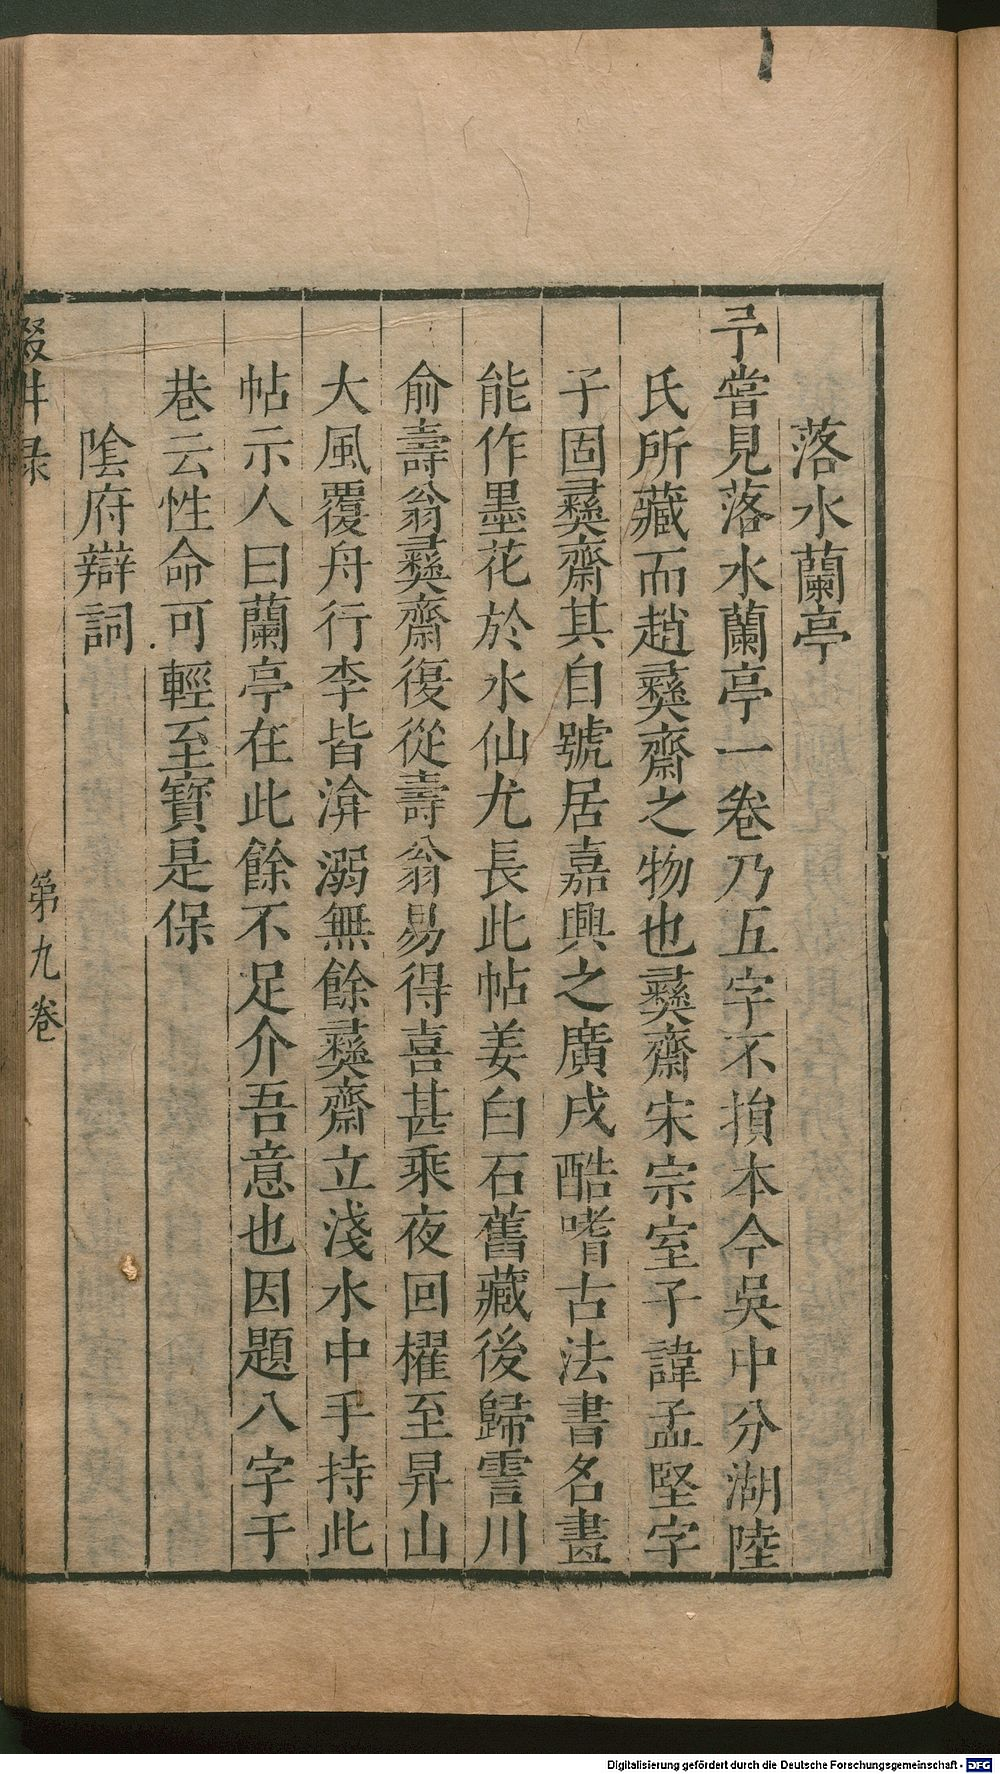 落水蘭亭
予嘗見落水蘭亭一卷乃五字不損本今吳中分湖陸
氏所藏而趙彝齋之物也彝齋宋宗室子諱孟堅字
子固彝齋其自號居嘉興之廣戌酷嗜古法書名畫
能作墨花於水仙尤長此帖姜白石舊藏後歸霅川
俞壽翁彝齋復從壽翁易得喜甚乘夜回櫂至昇山
大風覆舟行李皆渰溺無餘彝齋立淺水中手持此
帖示人曰蘭亭在此餘不足介吾意也因題八字于
卷云性命可輕至寶是保
陰府辯詞
輟耕录
第九卷
Digitalisierung gefördert durch die Deutsche Forschungsgemeinschaft - DFG